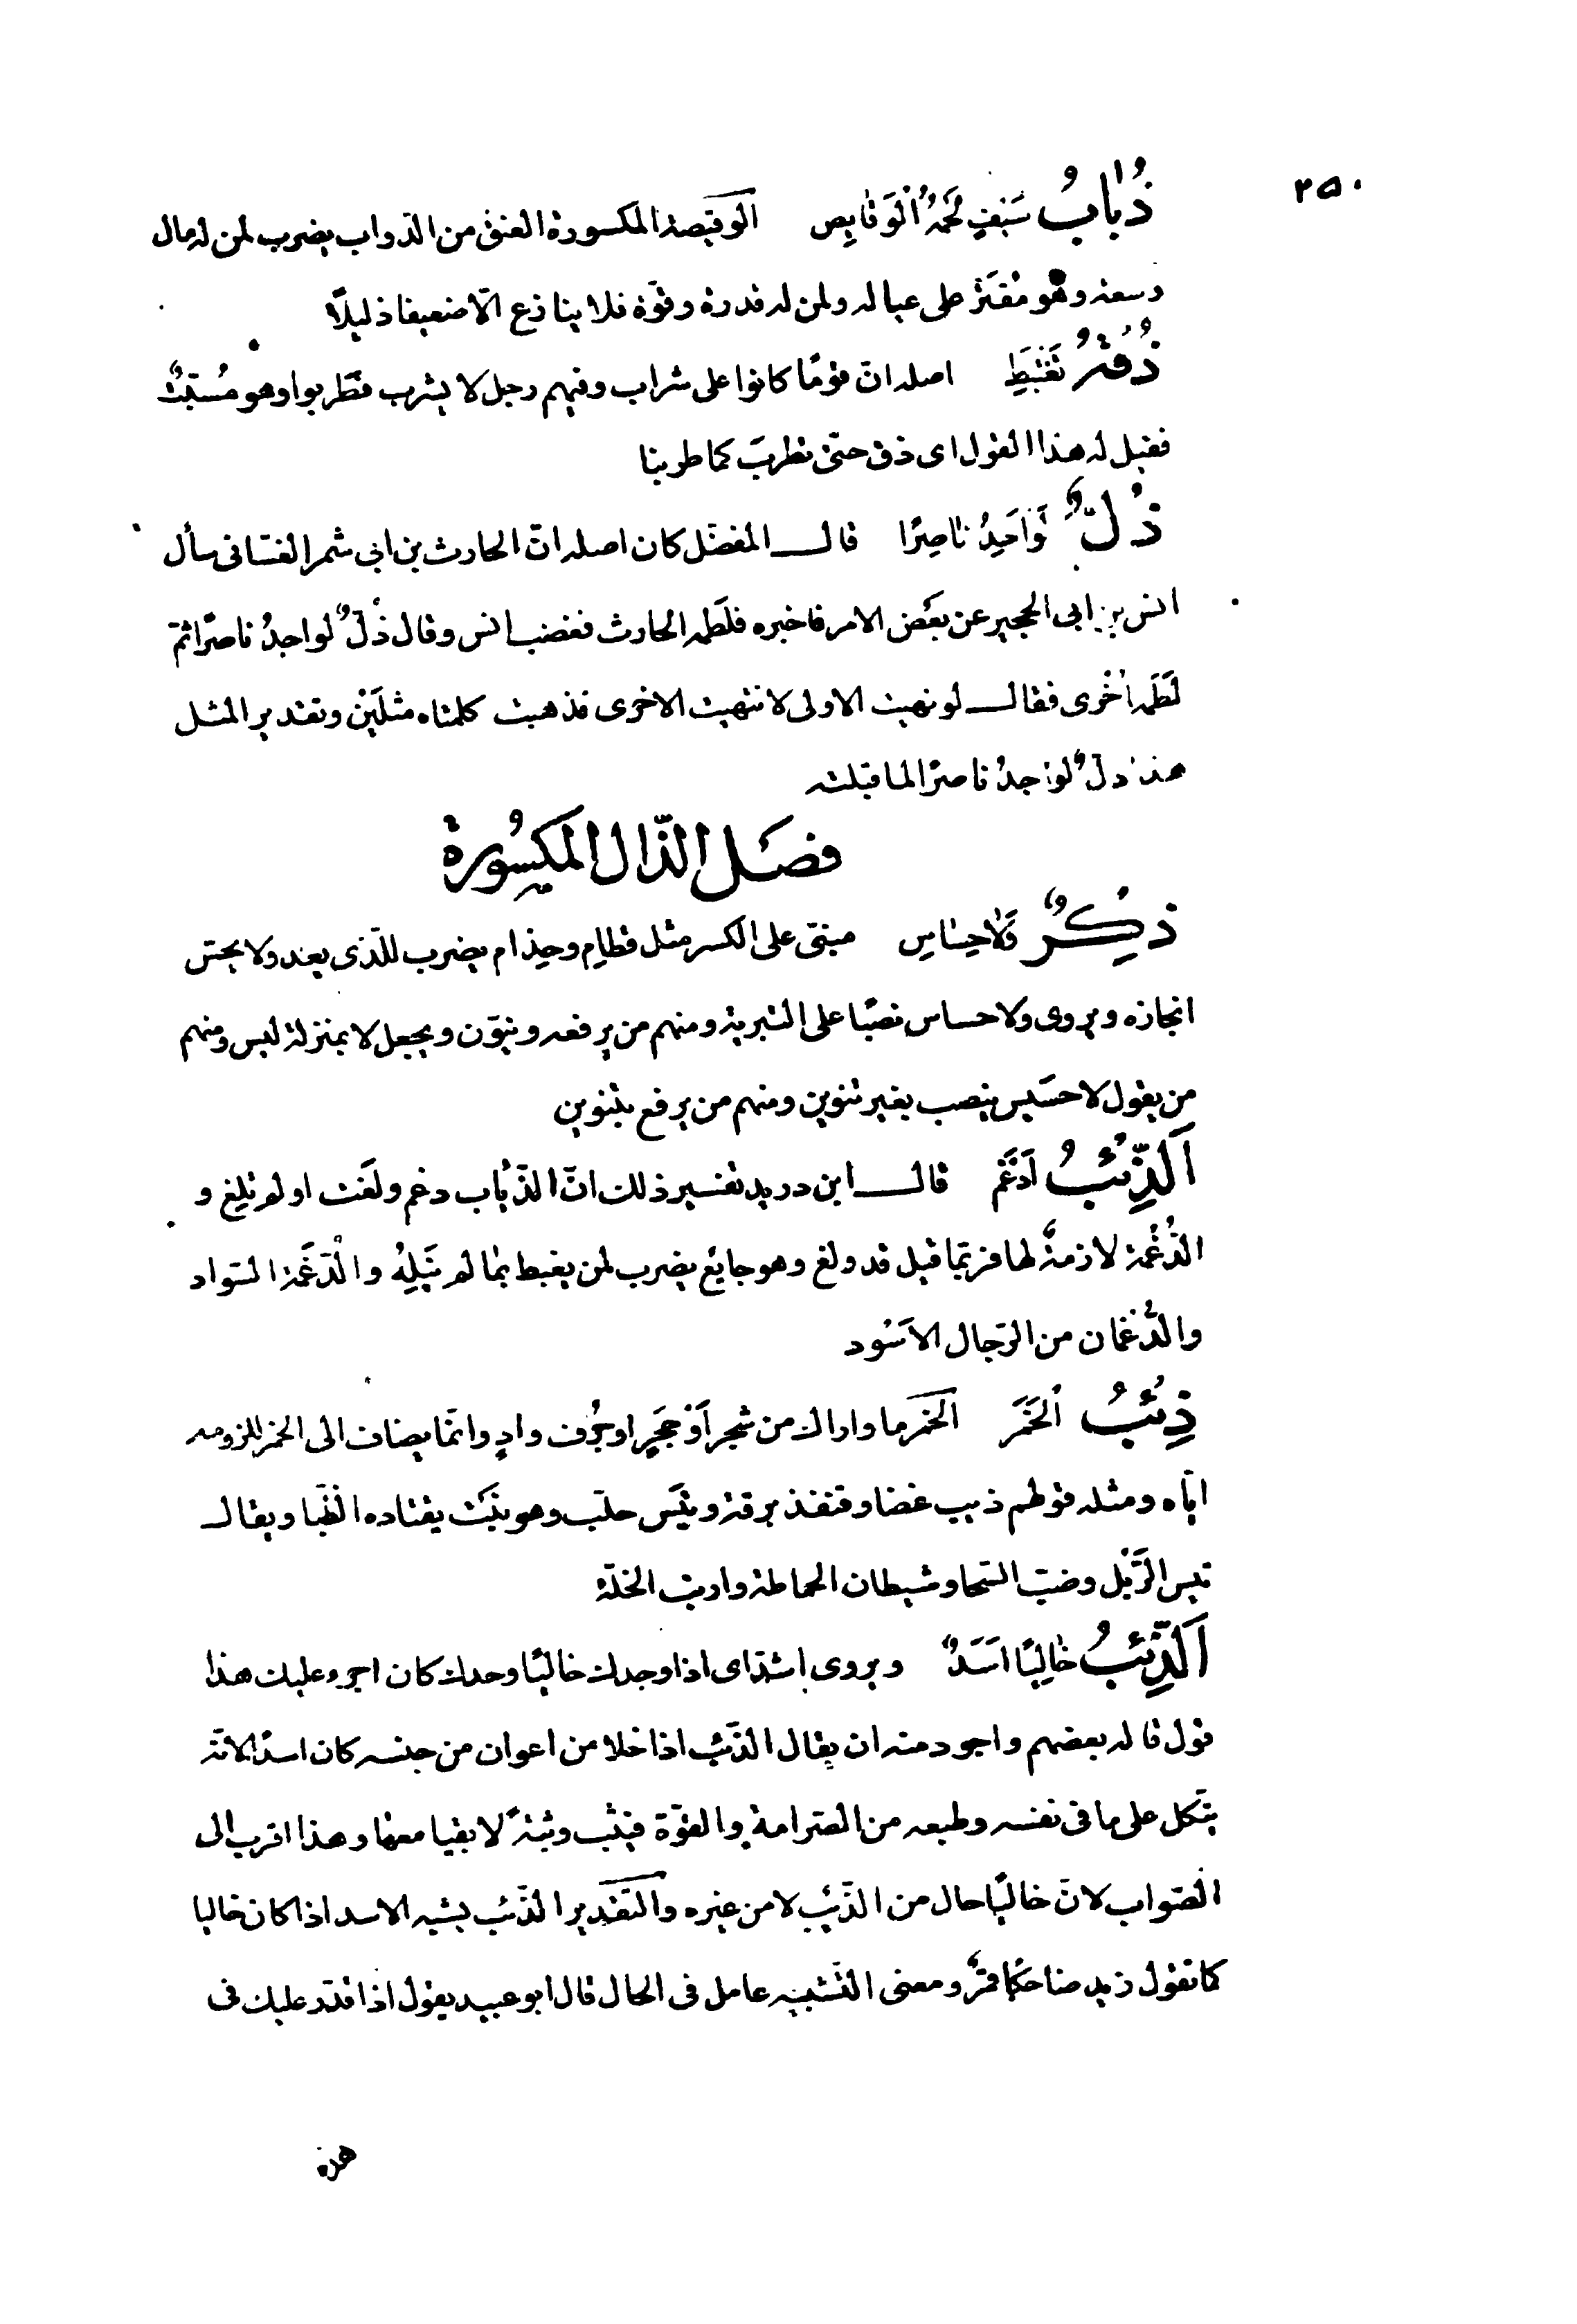 ٢٥٠
ذُبَابُ سَيْفٍ لَحْمُهُ الْوَقَايِصُ الوقيصة المكسورة العنق من الدّواب يضرب لمن له مال
وسعة وهو مُقَتّر على عياله ولمن له قدرة وقوّة فلا ينازع الّا ضعيفا ذليلًا
ذُقْهُ تَغْتَبِطِ اصله انّ قومًا كانوا على شراب وفيهم رجل لا يشرب فطربوا وهو مُسبِتٌ
فقيل له هذا القول اى ذق حتّى تطربَ كما طربنا
ذُلٌّ لَوْ اَجِدُ نَاصِرًا قال المفضّل كان اصله انّ الحارث بن ابى شمر الغسّانى سأل
انس بن ابى الحجير عن بعض الامر فاخبره فلطمه الحارث فغضب انس وقال ذُلٌّ لو اجدُ ناصرًا ثمّ
لَطَمَه اُخْرى فقال لو نهيت الاولى لانتهيت الاخرى فذهبت كلمتاه مثلَيْن وتقدير المثل
هذا ذلٌّ لو اجدُ ناصرًا لما قبلته
فصَل الذّال المكسُورة
ذِكْرٌ وَلَا حِسَاسِ مبنىّ على الكسر مثل قطام وحذام يضرب للّذى يعد ولا يحسّ
انجازه ويروى ولا حساس نصبًا على التبرية ومنهم من يرفعه وينوّن ويجعل لا بمنزلة ليس ومنهم
من يقول لا حسَيس ينصب بغير تنوين ومنهم من يرفع بتنوين
اَلذِّئْبُ اَدْغَمُ قال ابن دريد تفسير ذلك انّ الذّئاب دغم ولغت او لم تلغ و
الدُّغْمة لازمةٌ لها فربّما قيل قد ولغ وهو جايع يضرب لمن يغبط بما لم يَنَلِهُ والدّغَمة السّواد
والدُّغمان من الرّجال الاسْود
ذِئْبُ الخَمَرِ الخمر ما واراك من شجر اَوْ حجَرٍ او جُرف وادٍ وانّما يضاف الى الخمر للزومه
ايّاه ومثله قولهم ذيب غضا وقنفذ برقة وتَيس حلّب وهو نبْت يعتاده الظّبا ويقال
تيس الرّبْل وضبّ السّحا وشيطان الحماطة وارنب الخلّة
اَلذِّئْبُ خَالِيًا اَسَدٌ ويروى اشدّ اى اذا وجدك خاليًا وحدك كان اجرء عليك هذا
قول قاله بعضهم واجود منه ان يقال الذّئب اذا خلا من اعوان من جنسه كان اسدًا لانّه
يتّكل على ما فى نفسه وطبعه من الصّرامة والقوّة فيثب وثبةً لا بقيا معها وهذا اقرب الى
الصّواب لانّ خاليًا حال من الذّئب لا من غيره والتّقدير الذّئب يشبه الاسد اذا كان خاليا
كما تقول زيد ضاحكًا قمرٌ ومعنى التّشبيه عامل فى الحال قال ابو عبيد يقول اذا قدر عليك فى
هذه